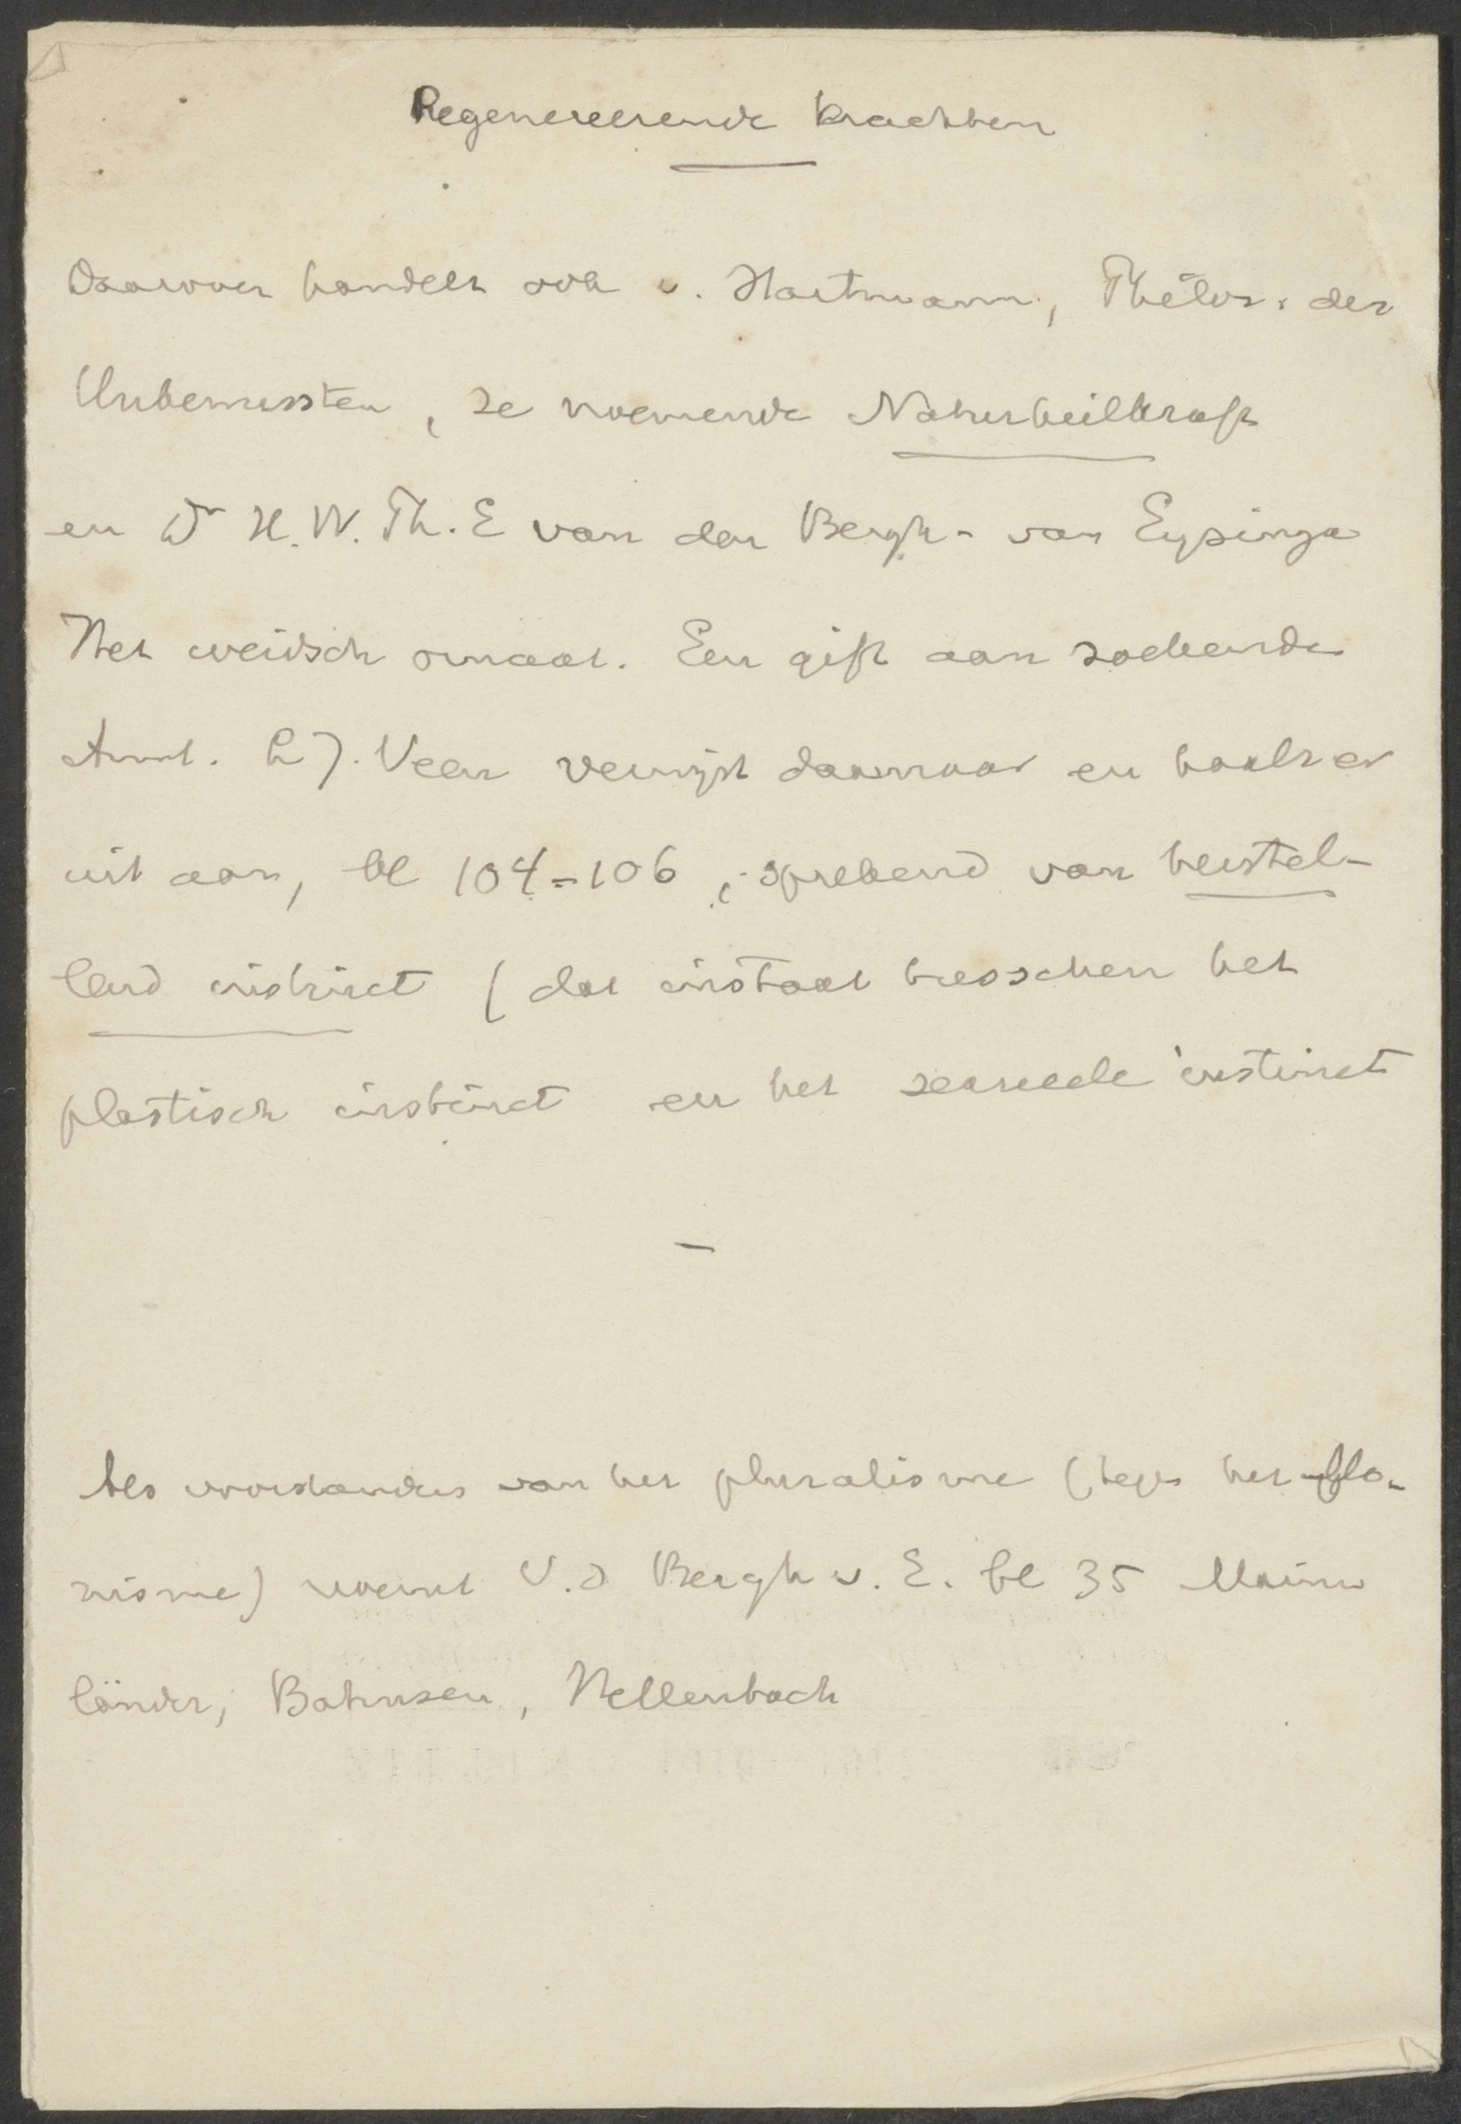 Regenereerende krachten
Daarover handelt ook v. Hartmann, Philos. der
Unbewussten, ze noemende Naturheilkraft
en Dr H. W. Ph. E van den Bergh - van Eysinga
Het weidsch ornaat. Een gift aan zoekende
Amst. L J. Veen verwijst daarnaar en haalt er
uit aan, bl 104-106, sprekend van herstel-
lend instinct (dat instaat tusschen het
plastisch instinct en het sexueele instinct
—
Als voorstander van het pluralisme (tegen het Mo-
nisme) noemt V. d Bergh v. E. bl 35 Main
länder, Bahnsen, Hellenbach